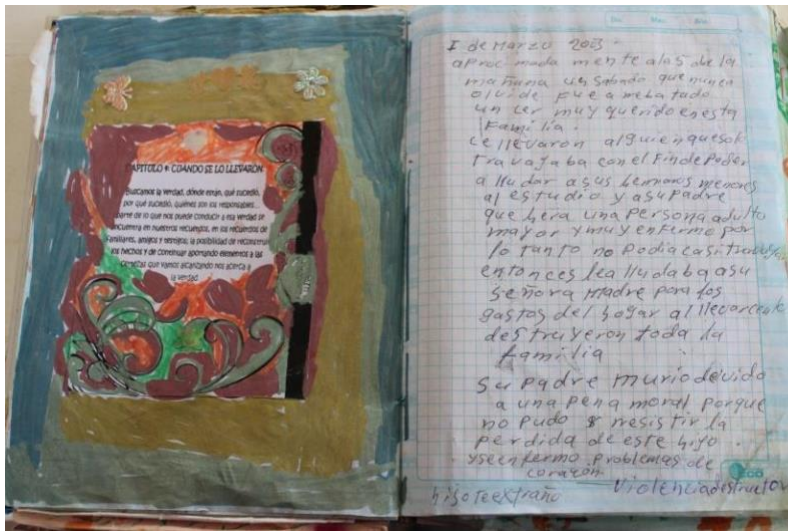 CAPÍTULO 4: CUANDO SE LO LLEVARON
Buscamos la verdad, dónde están, qué sucedió,
por qué sucedió, quiénes son los responsables...
parte de lo que nos puede conducir a esa verdad se
encuentra en nuestros recuerdos, en los recuerdos de
familiares, amigos y testigos, la posibilidad de reconstruir
los hechos y de continuar aportando elementos a las
certezas que vamos alcanzando nos acerca a
la verdad
I de Marzo 2003.
aproc mada mente a las 5 de la
mañana un sabado que nunca
olvide fue a rrebatado
un cer muy querido en esta
Familia.
ce llevaron alguien que solo
travajaba con el Fin de Poder
a lludar a sus hermanos menores
al estudio y a su Padre
que hera una persona adulto
mayor y muy enfermo por
lo tanto no podia casi travajar
entonces lea lludaba a su
señora Madre para los
gastos del hogar al llevarcelo
destruyeron toda la
familia
Su Padre murio devido
a una pena moral porque
no pudo resistir la
perdida de este hijo.
y se enfermo problemas de
corazon
hijo te extraño Violencia destructor
ECO